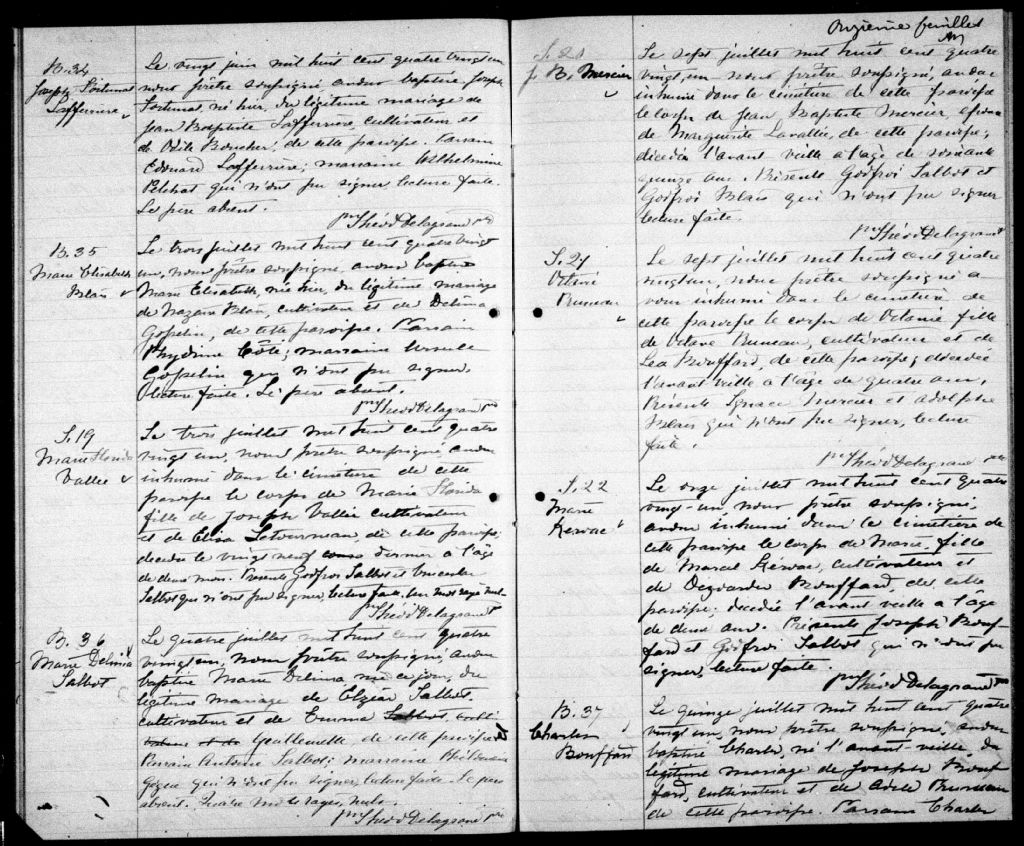 B. 34
Joseph Fortunat
Lafferriere
Le vingt juin mil huit cent quatre vingt un
nous prêtre soussigné avons baptisé Joseph
Fortunat, né hier, du légitime mariage de
Jean Baptiste Lafferriere, cultivateur et
de Odile Boucher, de cette paroisse. Parrain
Edouard Lafferrière; marraine Wilhelmine
Pelchat qui n'ont pu signer lecture faite.
Le père absent.
Théod Delagrave ptre
B. 35
Marie Elisabeth
Blais
Le trois juillet mil huit cent quatre vingt
un, nous prêtre soussigné avons baptisé
Marie Elisabeth, née hier, du légitime mariage
de Nazaire Blais, cultivateur et de Delima
Gosselin, de cette paroisse. Parrain
Phydime Côté; marraine Ursule
Gosselin qui n'ont pu signer
lecture faite. Le père absent.
Théod Delagrave ptre
S. 19
Marie Florida
Vallée
Le trois juillet mil huit cent quatre
vingt un, nous prêtre soussigné avons
inhumé dans le cimetière de cette
paroisse le corps de Marie Florida
fille de Joseph Vallée cultivateur
et de Eliza Letourneau, de cette paroisse;
décédée le vingt neuf dernier à l'âge
de deux mois. Présents Godfroi Talbot et
Talbot qui n'ont pu signer, lecture faite. Un mot rayé nul.
Théod Delagrave ptre
B. 36
Marie Delima
Talbot
Le quatre juillet mil huit cent quatre
vingt un, nous prêtre soussigné, avons
baptisé Marie Delima née ce jour, du
légitime mariage de Elzéar Talbot,
cultivateur et de Emma Talbot, culti
vateur et de Guillemette, de cette paroisse
Parrain Antoine Talbot; marraine Philomène
qui n'ont pu signer, lecture faite. Le père
absent. Quatre mots rayés, nuls.
Théod Delagrave ptre
Onzième feuillet
S. 20
J. B. Mercier
Le sept juillet mil huit cent quatre
vingt, un nous prêtre soussigné, avons
inhumé dans le cimetière de cette paroisse
le corps de Jean Baptiste Mercier, époux
de Marguerite Lavallée, de cette paroisse;
décédé l'avant veille à l'âge de soixante
quinze ans. Présents Godfroi Talbot et
Godfroi Blais qui n'ont pu signer
lecture faite.
Théod Delagrave ptre
S. 21
Octavie
Bruneau
Le sept juillet mil huit cent quatre
vingt un, nous prêtre soussigné a
vons inhumé dans le cimetière de
cette paroisse le corps de Octavie fille
de Octave Bruneau, cultivateur et de
Lea Bouffard, de cette paroisse; décédée
l'avant veille à l'âge de quatre ans.
Présents Ignace Mercier et Adolphe
Blais qui n'ont pu signer, lecture
faite.
Théod Delagrave ptre
S. 22
Marie
Kerouac
Le onze juillet mil huit cent quatre
vingt-un, nous prêtre soussigné,
avons inhumé dans le cimetière de
cette paroisse le corps de Marie fille
de Marcel Kérouac, cultivateur et
de Bouffard, de cette
paroisse; décédée l'avant veille à l'âge
de deux ans. Présents Joseph Bouf
fard et Godfroi Talbot qui n'ont pu
signer, lecture faite.
Théod Delagrave ptre
B. 37
Charles
Bouffard
Le quinze juillet mil huit cent quatre
vingt un, nous prêtre soussigné, avons
baptisé Charles, né l'avant-veille, du
légitime mariage de Joseph Bouf
fard, cultivateur et de Adele Bruneau
de cette paroisse. Parrain Charles